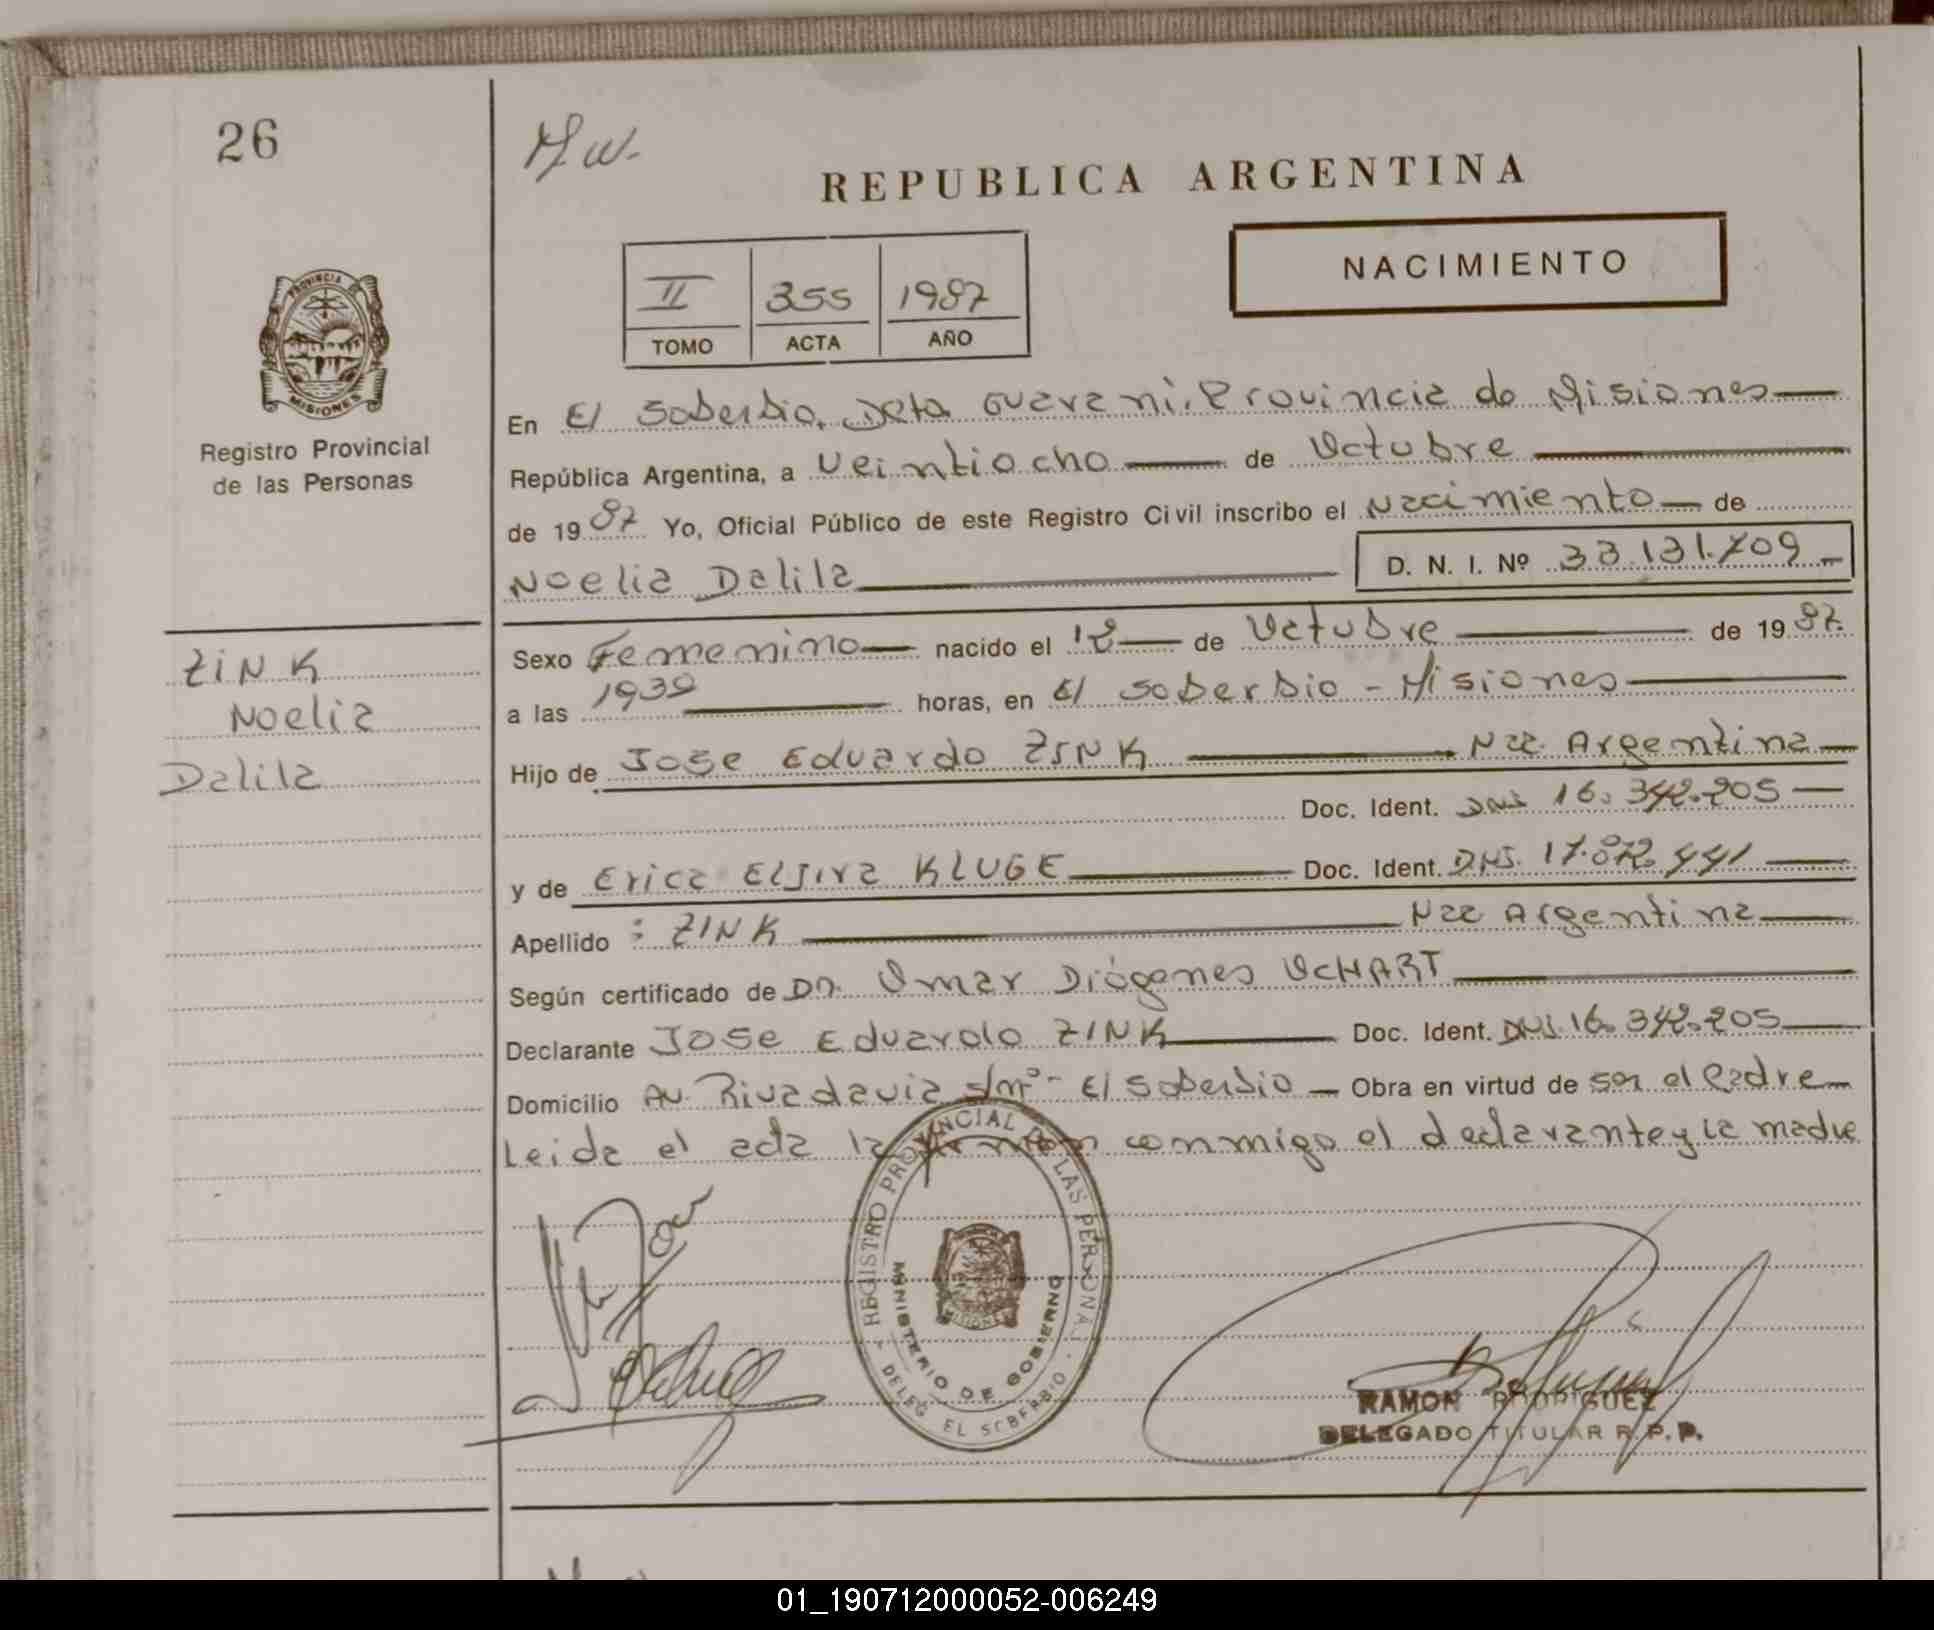 26
REPUBLICA ARGENTINA
II 355 1987
TOMO ACTA AÑO
NACIMIENTO
PROVINCIA DE
MISIONES
Registro Provincial
de las Personas
En El Soberbio, Dpto Guarani. Provincia de Misiones
República Argentina, a Veintiocho de Octubre
de 1987 Yo, Oficial Público de este Registro Civil inscribo el Nacimiento de
Noelia Dalila D. N. I. Nº 33.131.709
ZINK
Noelia
Dalila
Sexo Femenino nacido el 12 de Octubre de 1987.
a las 1930 horas, en El Soberbio - Misiones
Hijo de Jose Eduardo ZINK Nac. Argentina
Doc. Ident. DNI 16.342.205
y de Erica Elsira KLUGE Doc. Ident. DNI. 17.872.441
Apellido : ZINK Nac Argentina
Según certificado de Dr. Omar Diógenes OCHART
Declarante Jose Eduardo ZINK Doc. Ident. DNI. 16.342.205
Domicilio Av. Rivadavia s/nº - El Soberbio Obra en virtud de ser el Padre
Leida el acta la firman conmigo el declarante y la madre
REGISTRO PROVINCIAL DE LAS PERSONAS
MINISTERIO DE GOBIERNO
DELEG. EL SOBERBIO
MISIONES
RAMON RODRIGUEZ
DELEGADO TITULAR R.P.P.
01_190712000052-006249